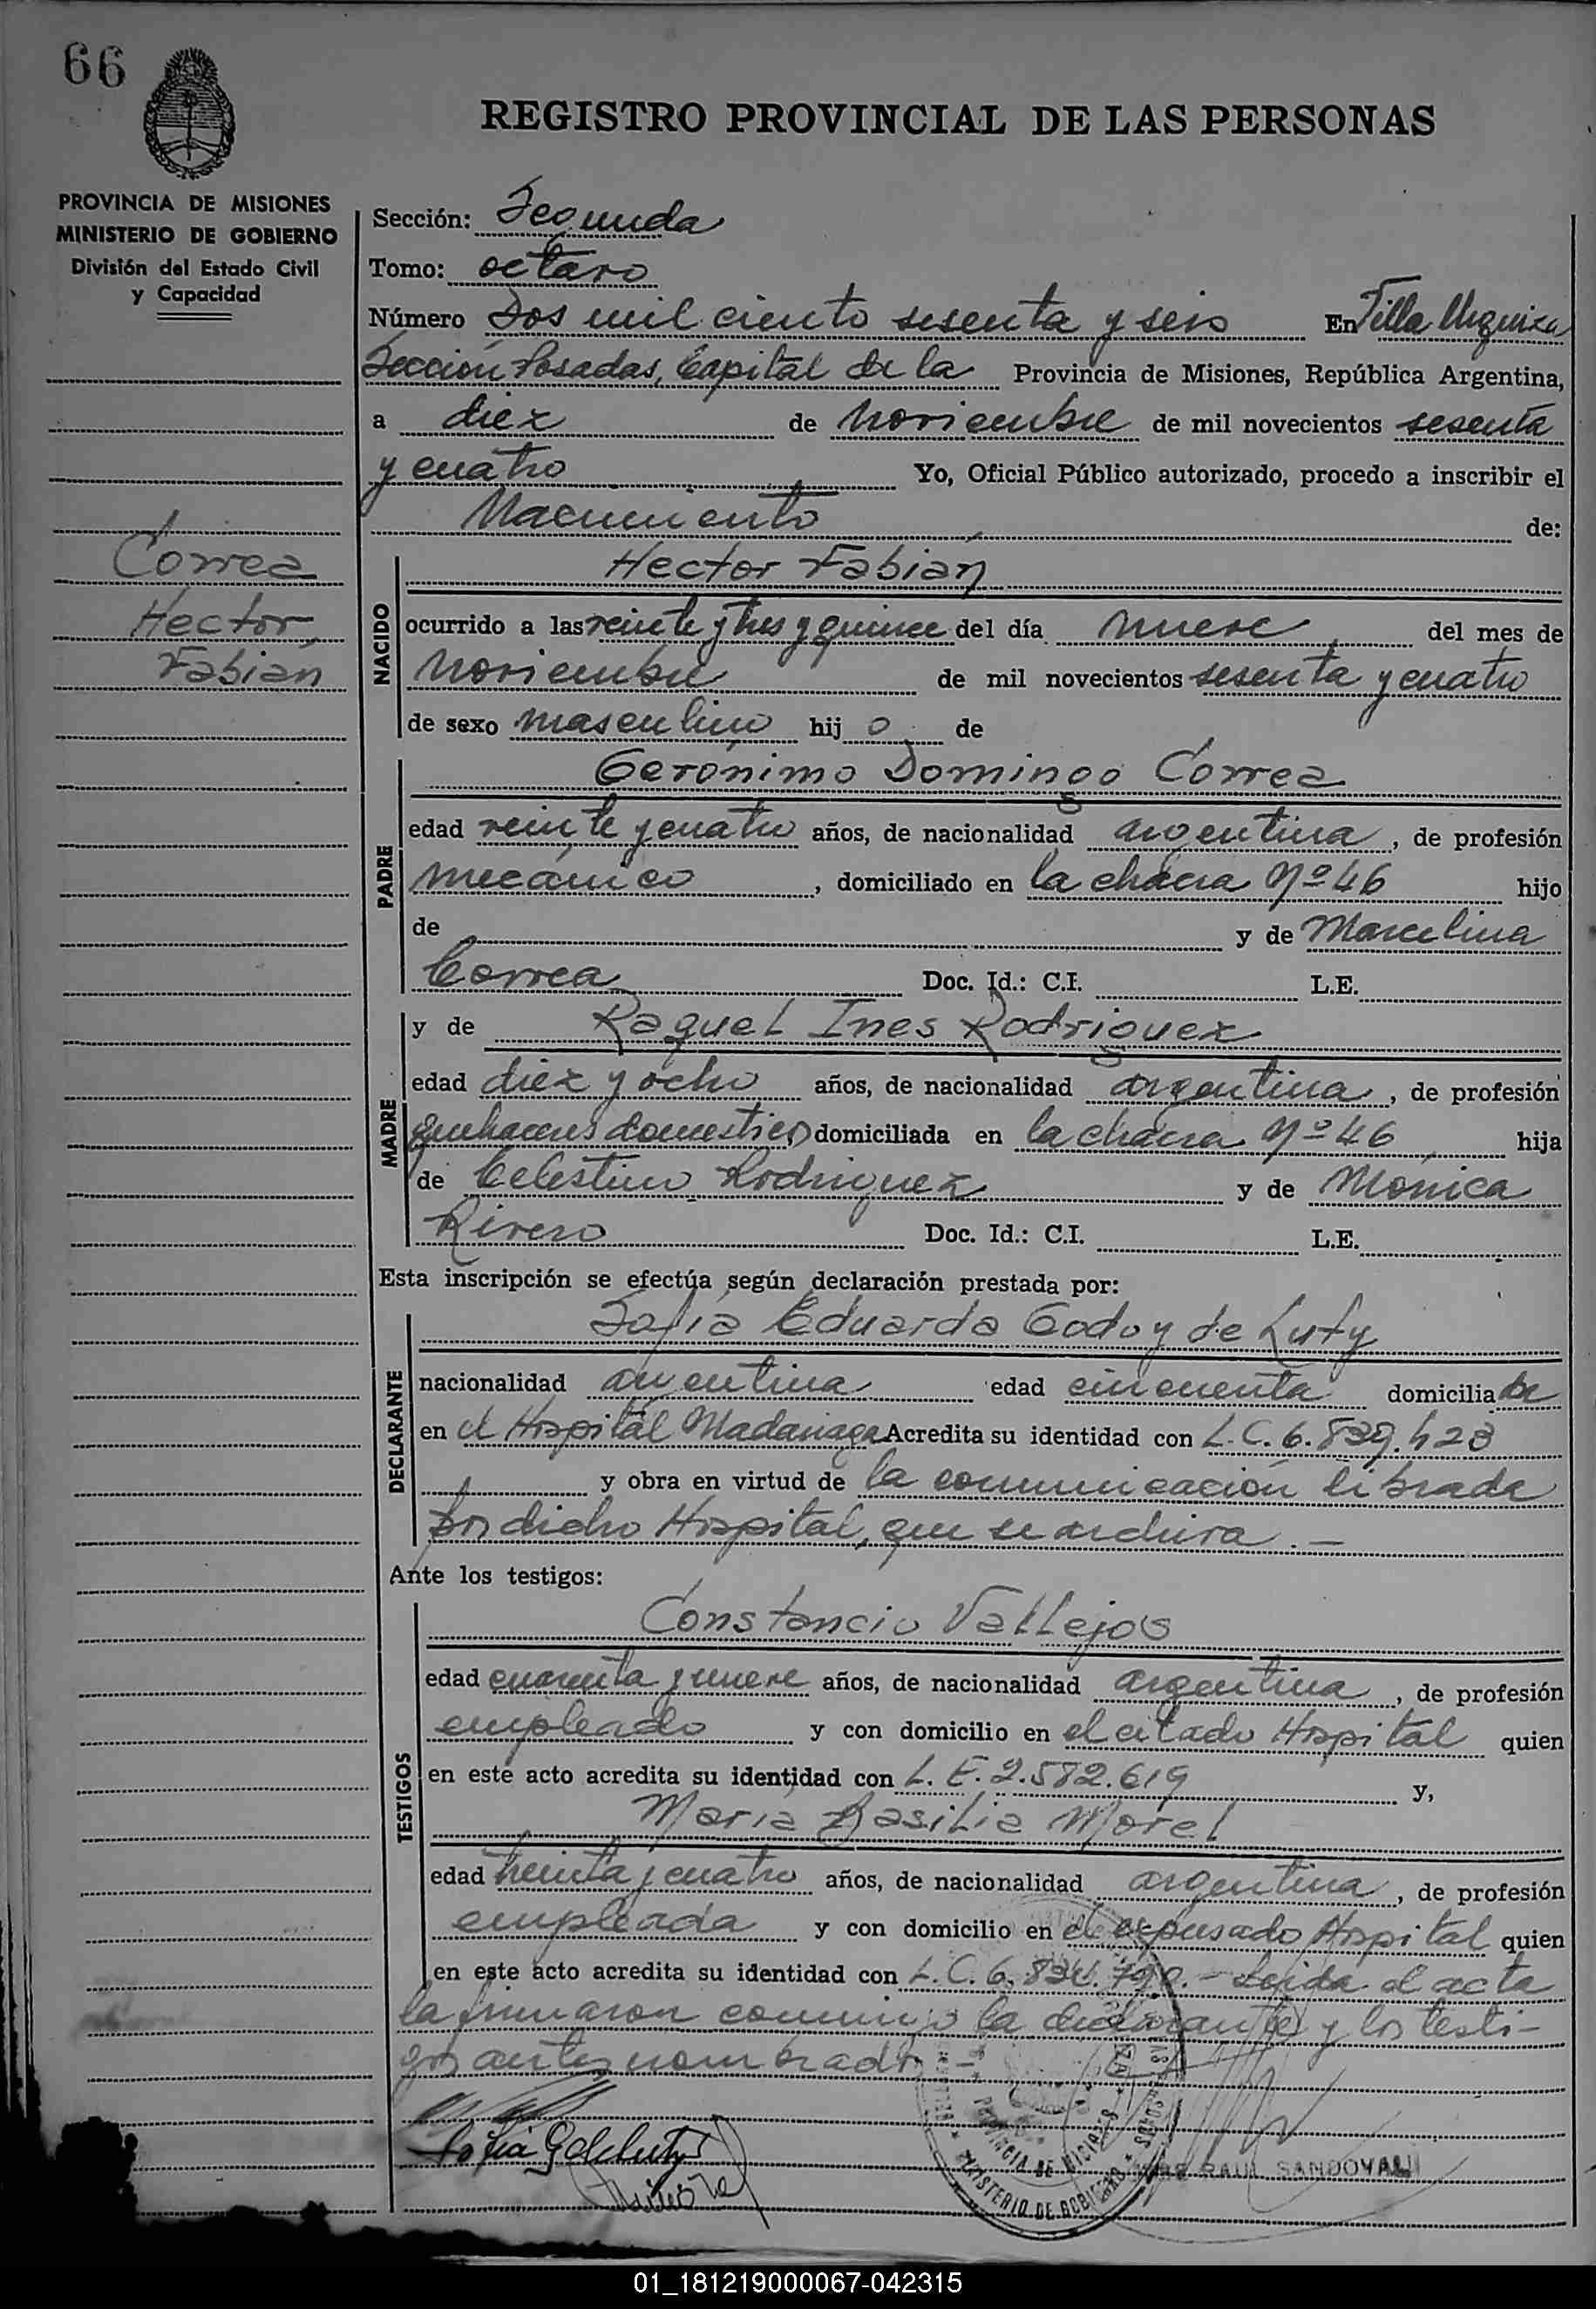 66
REGISTRO PROVINCIAL DE LAS PERSONAS
PROVINCIA DE MISIONES
MINISTERIO DE GOBIERNO
División del Estado Civil
y Capacidad
Correa
Hector
Fabián
Sección: Segunda
Tomo: octavo
Número Dos mil ciento sesenta y seis En Villa Urquiza
Sección Posadas, Capital de la Provincia de Misiones, República Argentina,
a diez de noviembre de mil novecientos sesenta
y cuatro Yo, Oficial Público autorizado, procedo a inscribir el
Nacimiento de:
NACIDO
Hector Fabián
ocurrido a las veinte y tres y quince del día nueve del mes de
noviembre de mil novecientos sesenta y cuatro
de sexo masculino hij o de
PADRE
Gerónimo Domingo Correa
edad veinte y cuatro años, de nacionalidad argentina, de profesión
mecánico, domiciliado en la chacra Nº 46 hijo
de y de Marcelina
Correa Doc. Id.: C.I. L.E.
MADRE
y de Raquel Ines Rodriguez
edad diez y ocho años, de nacionalidad argentina, de profesión
quehaceres domesticos domiciliada en la chacra Nº 46 hija
de Celestino Rodriguez y de Mónica
Rivero Doc. Id.: C.I. L.E.
Esta inscripción se efectúa según declaración prestada por:
DECLARANTE
Sofia Eduarda Godoy de Luty
nacionalidad argentina edad cincuenta domiciliada
en el Hospital Madariaga Acredita su identidad con L.C. 6.839.423
y obra en virtud de la comunicación librada
por dicho Hospital, que se archiva.-
Ante los testigos:
TESTIGOS
Constancio Vallejos
edad cuarenta y nueve años, de nacionalidad argentina, de profesión
empleado y con domicilio en el citado Hospital quien
en este acto acredita su identidad con L.E. 2.582.619 y,
Maria Basilia Morel
edad treinta y cuatro años, de nacionalidad argentina, de profesión
empleada y con domicilio en el expresado Hospital quien
en este acto acredita su identidad con L.C. 6. - Leida el acta
la firmaron conmigo la declarante y los testi-
gos antes nombrados.-
Sofia G de Luty
PROVINCIA DE MISIONES
MINISTERIO DE GOBIERNO
RAUL SANDOVAL
01_181219000067-042315